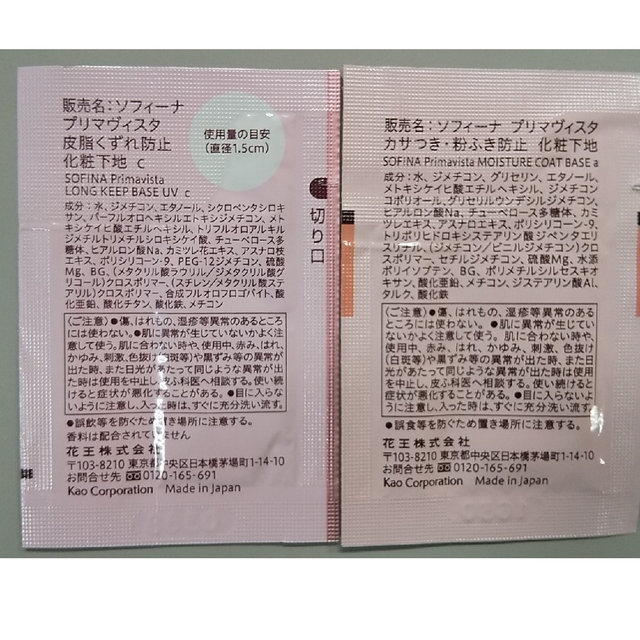 販売名：ソフィーナ
プリマヴィスタ
皮脂くずれ防止
化粧下地 c
SOFINA Primavista
LONG KEEP BASE UV c
使用量の目安
(直径1.5cm)
切り口
成分：水、ジメチコン、エタノール、シクロペンタシロキ
サン、パーフルオロヘキシルエトキシジメチコン、メト
キシケイヒ酸エチルヘキシル、トリフルオロアルキル
ジメチルトリメチルシロキシケイ酸、チューベローズ多
糖体、ヒアルロン酸Na、カミツレ花エキス、アスナロ枝
エキス、ポリシリコーン-9、PEG-12ジメチコン、硫酸
Mg、BG、(メタクリル酸ラウリル／ジメタクリル酸グ
リコール)クロスポリマー、(スチレン／メタクリル酸ステ
アリル)クロスポリマー、合成フルオロフロゴパイト、酸
化亜鉛、酸化チタン、酸化鉄、メチコン
〈ご注意〉●傷、はれもの、湿疹等異常のあるところ
には使わない。●肌に異常が生じていないかよく注
意して使う。肌に合わない時や、使用中、赤み、はれ、
かゆみ、刺激、色抜け(白斑等)や黒ずみ等の異常が
出た時、また日光があたって同じような異常が出
た時は使用を中止し、皮ふ科医へ相談する。使い続
けると症状が悪化することがある。●目に入らな
いように注意し、入った時は、すぐに充分洗い流す。
●誤飲等を防ぐため置き場所に注意する。
香料は配合されていません
花王株式会社
〒103-8210 東京都中央区日本橋茅場町1-14-10
お問合せ先 0120-165-691
Kao Corporation Made in Japan
販売名：ソフィーナ プリマヴィスタ
カサつき・粉ふき防止 化粧下地
SOFINA Primavista MOISTURE COAT BASE a
成分：水、ジメチコン、グリセリン、エタノール、
メトキシケイヒ酸エチルヘキシル、ジメチコン
コポリオール、グリセリルウンデシルジメチコン、
ヒアルロン酸Na、チューベローズ多糖体、カミ
ツレエキス、アスナロエキス、ポリシリコーン-9、
トリポリヒドロキシステアリン酸ジペンタエリ
スリチル、(ジメチコン／ビニルジメチコン)クロ
スポリマー、セチルジメチコン、硫酸Mg、水添
ポリイソブテン、BG、ポリメチルシルセスキオ
キサン、酸化亜鉛、メチコン、ジステアリン酸Al、
タルク、酸化鉄
〈ご注意〉●傷、はれもの、湿疹等異常のあると
ころには使わない。●肌に異常が生じてい
ないかよく注意して使う。肌に合わない時や、
使用中、赤み、はれ、かゆみ、刺激、色抜け
(白斑等)や黒ずみ等の異常が出た時、また日
光があたって同じような異常が出た時は使用
を中止し、皮ふ科医へ相談する。使い続けると
症状が悪化することがある。●目に入らないよ
うに注意し、入った時は、すぐに充分洗い流す。
●誤食等を防ぐため置き場所に注意する。
花王株式会社
〒103-8210 東京都中央区日本橋茅場町1-14-10
お問合せ先 0120-165-691
Kao Corporation Made in Japan